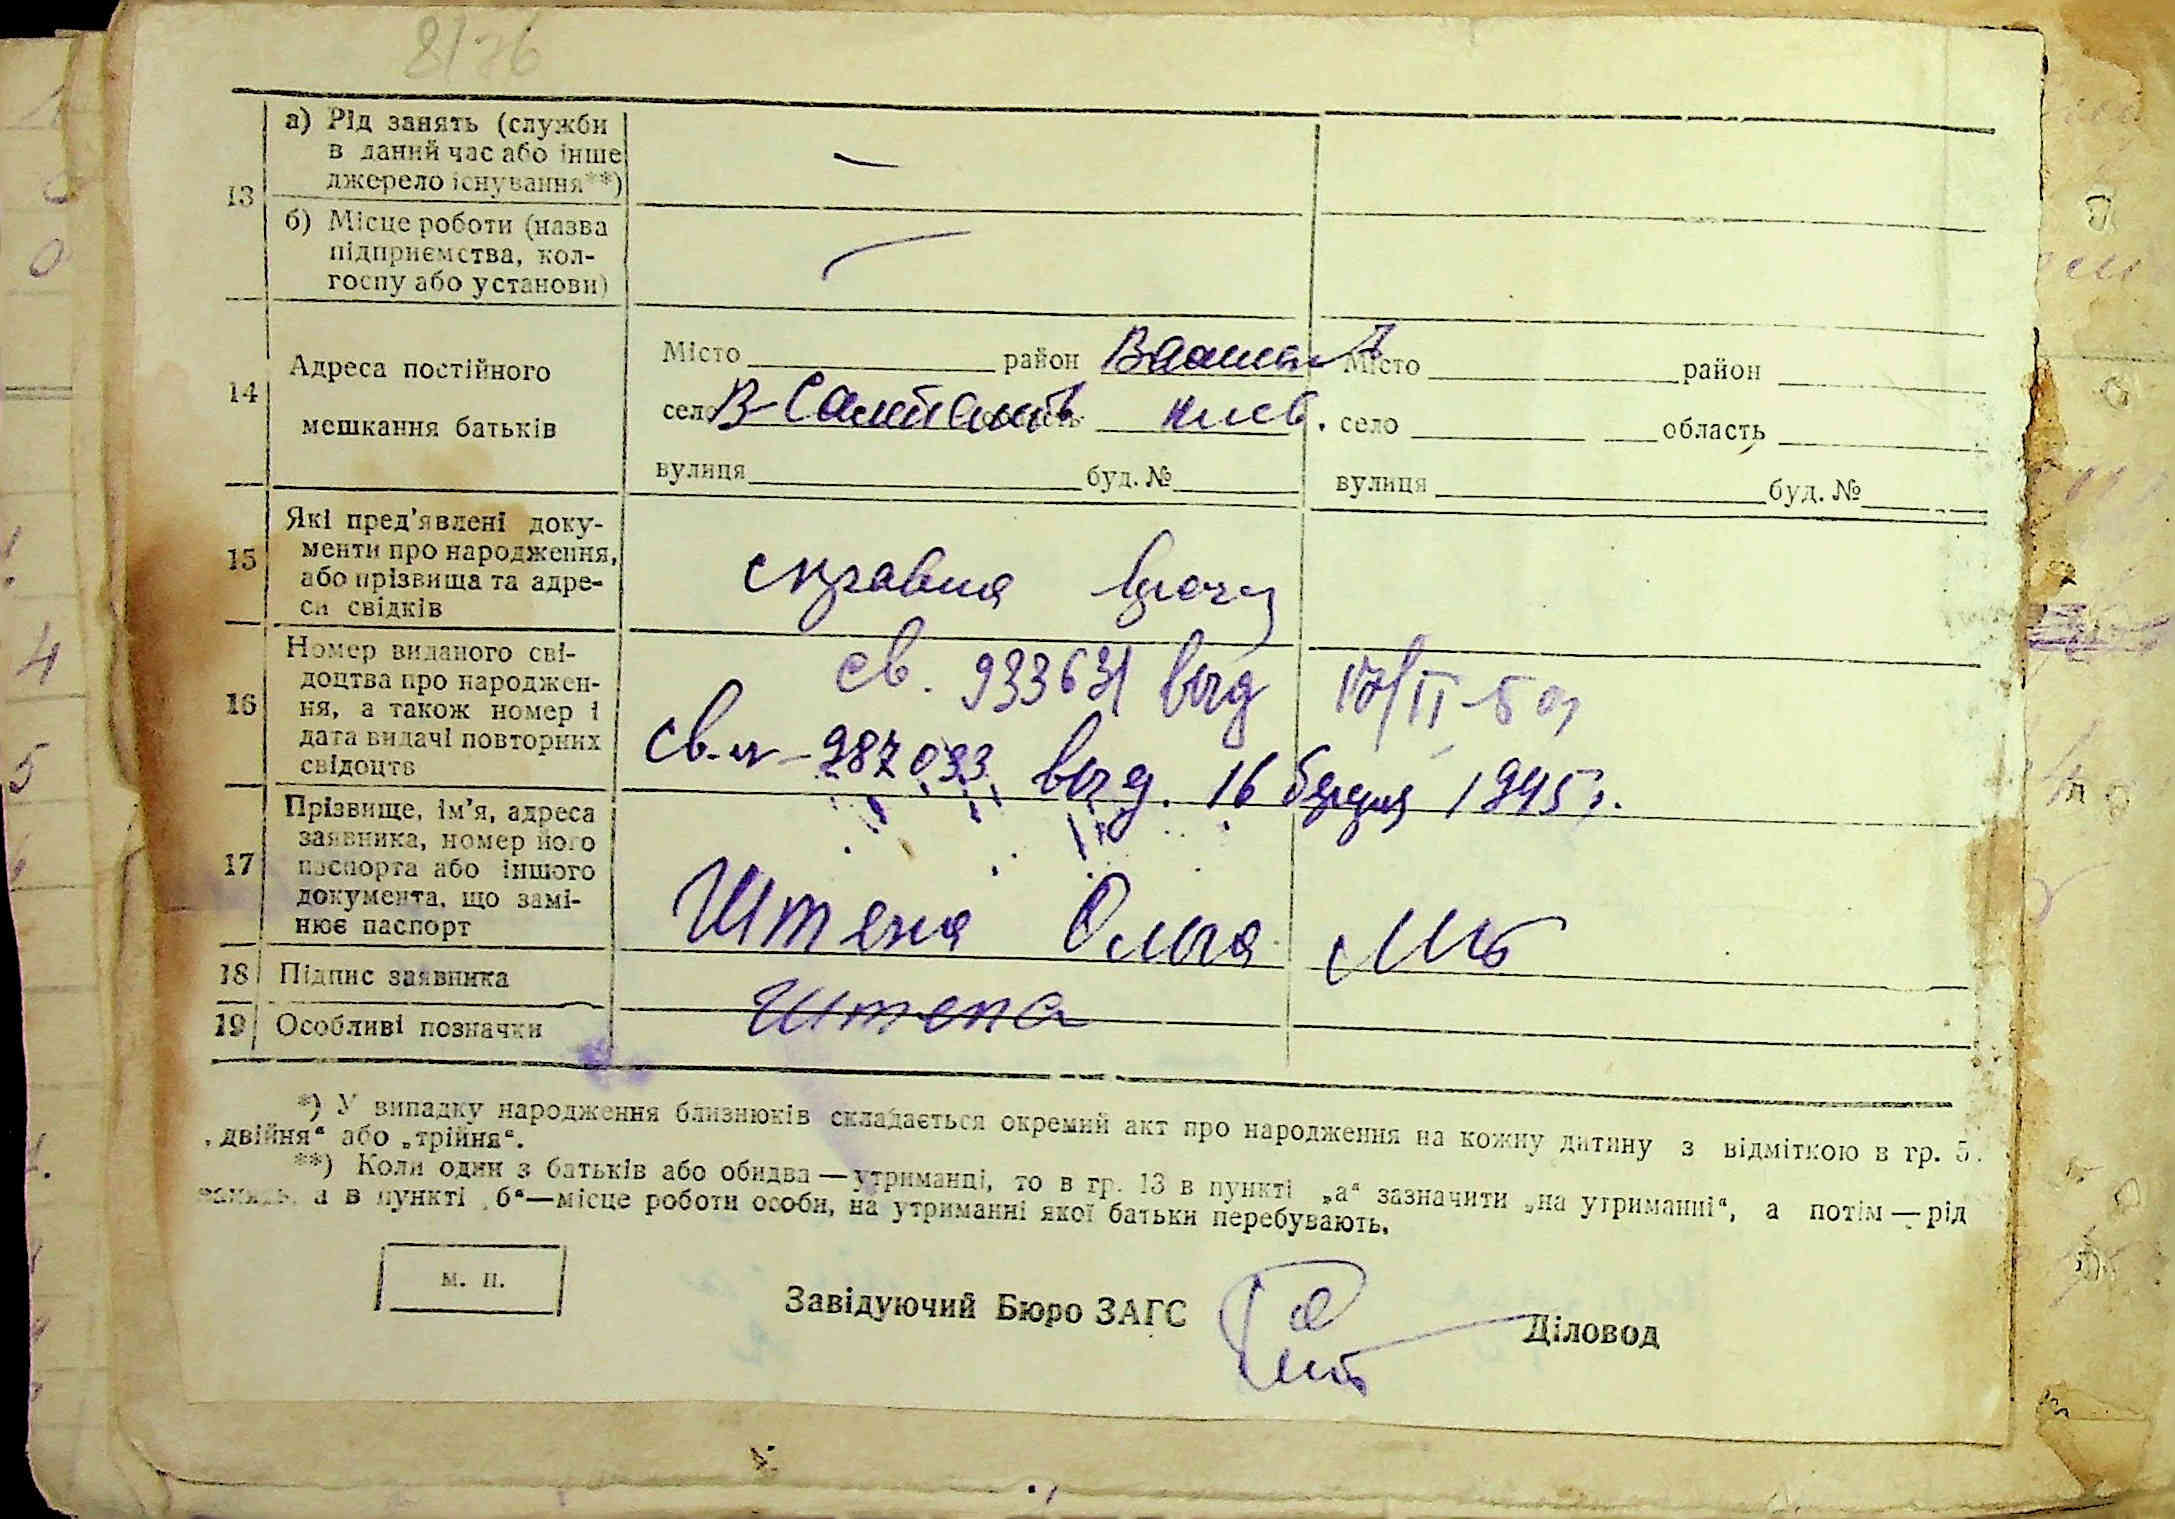 8/76
13
а) Рід занять (служби
в даний час або інше
джерело існування**)
—
б) Місце роботи (назва
підприємства, кол-
госпу або установи)
—
14
Адреса постійного
мешкання батьків
Місто район
село В Солтанівк київ.
вулиця буд. №
Місто район
село область
вулиця буд. №
15
Які пред'явлені доку-
менти про народження,
або прізвища та адре-
си свідків
справка врачу
16
Номер виданого сві-
доцтва про народжен-
ня, а також номер і
дата видачі повторних
свідоцтв
св. 933631 вид 17/II-50
св-н-287033 вид. 16 березня 1945 г.
17
Прізвище, ім'я, адреса
заявника, номер його
паспорта або іншого
документа, що замі-
нює паспорт
Штепа Ольга
18
Підпис заявника
Штепа
19
Особливі позначки
*) У випадку народження близнюків складається окремий акт про народження на кожну дитину з відміткою в гр. 5.
„двійня“ або „трійня“.
**) Коли один з батьків або обидва — утриманці, то в гр. 13 в пункті „а“ зазначити „на утриманні“, а потім — рід
занять, а в пункті „б“ — місце роботи особи, на утриманні якої батьки перебувають.
м. п.
Завідуючий Бюро ЗАГС
Діловод